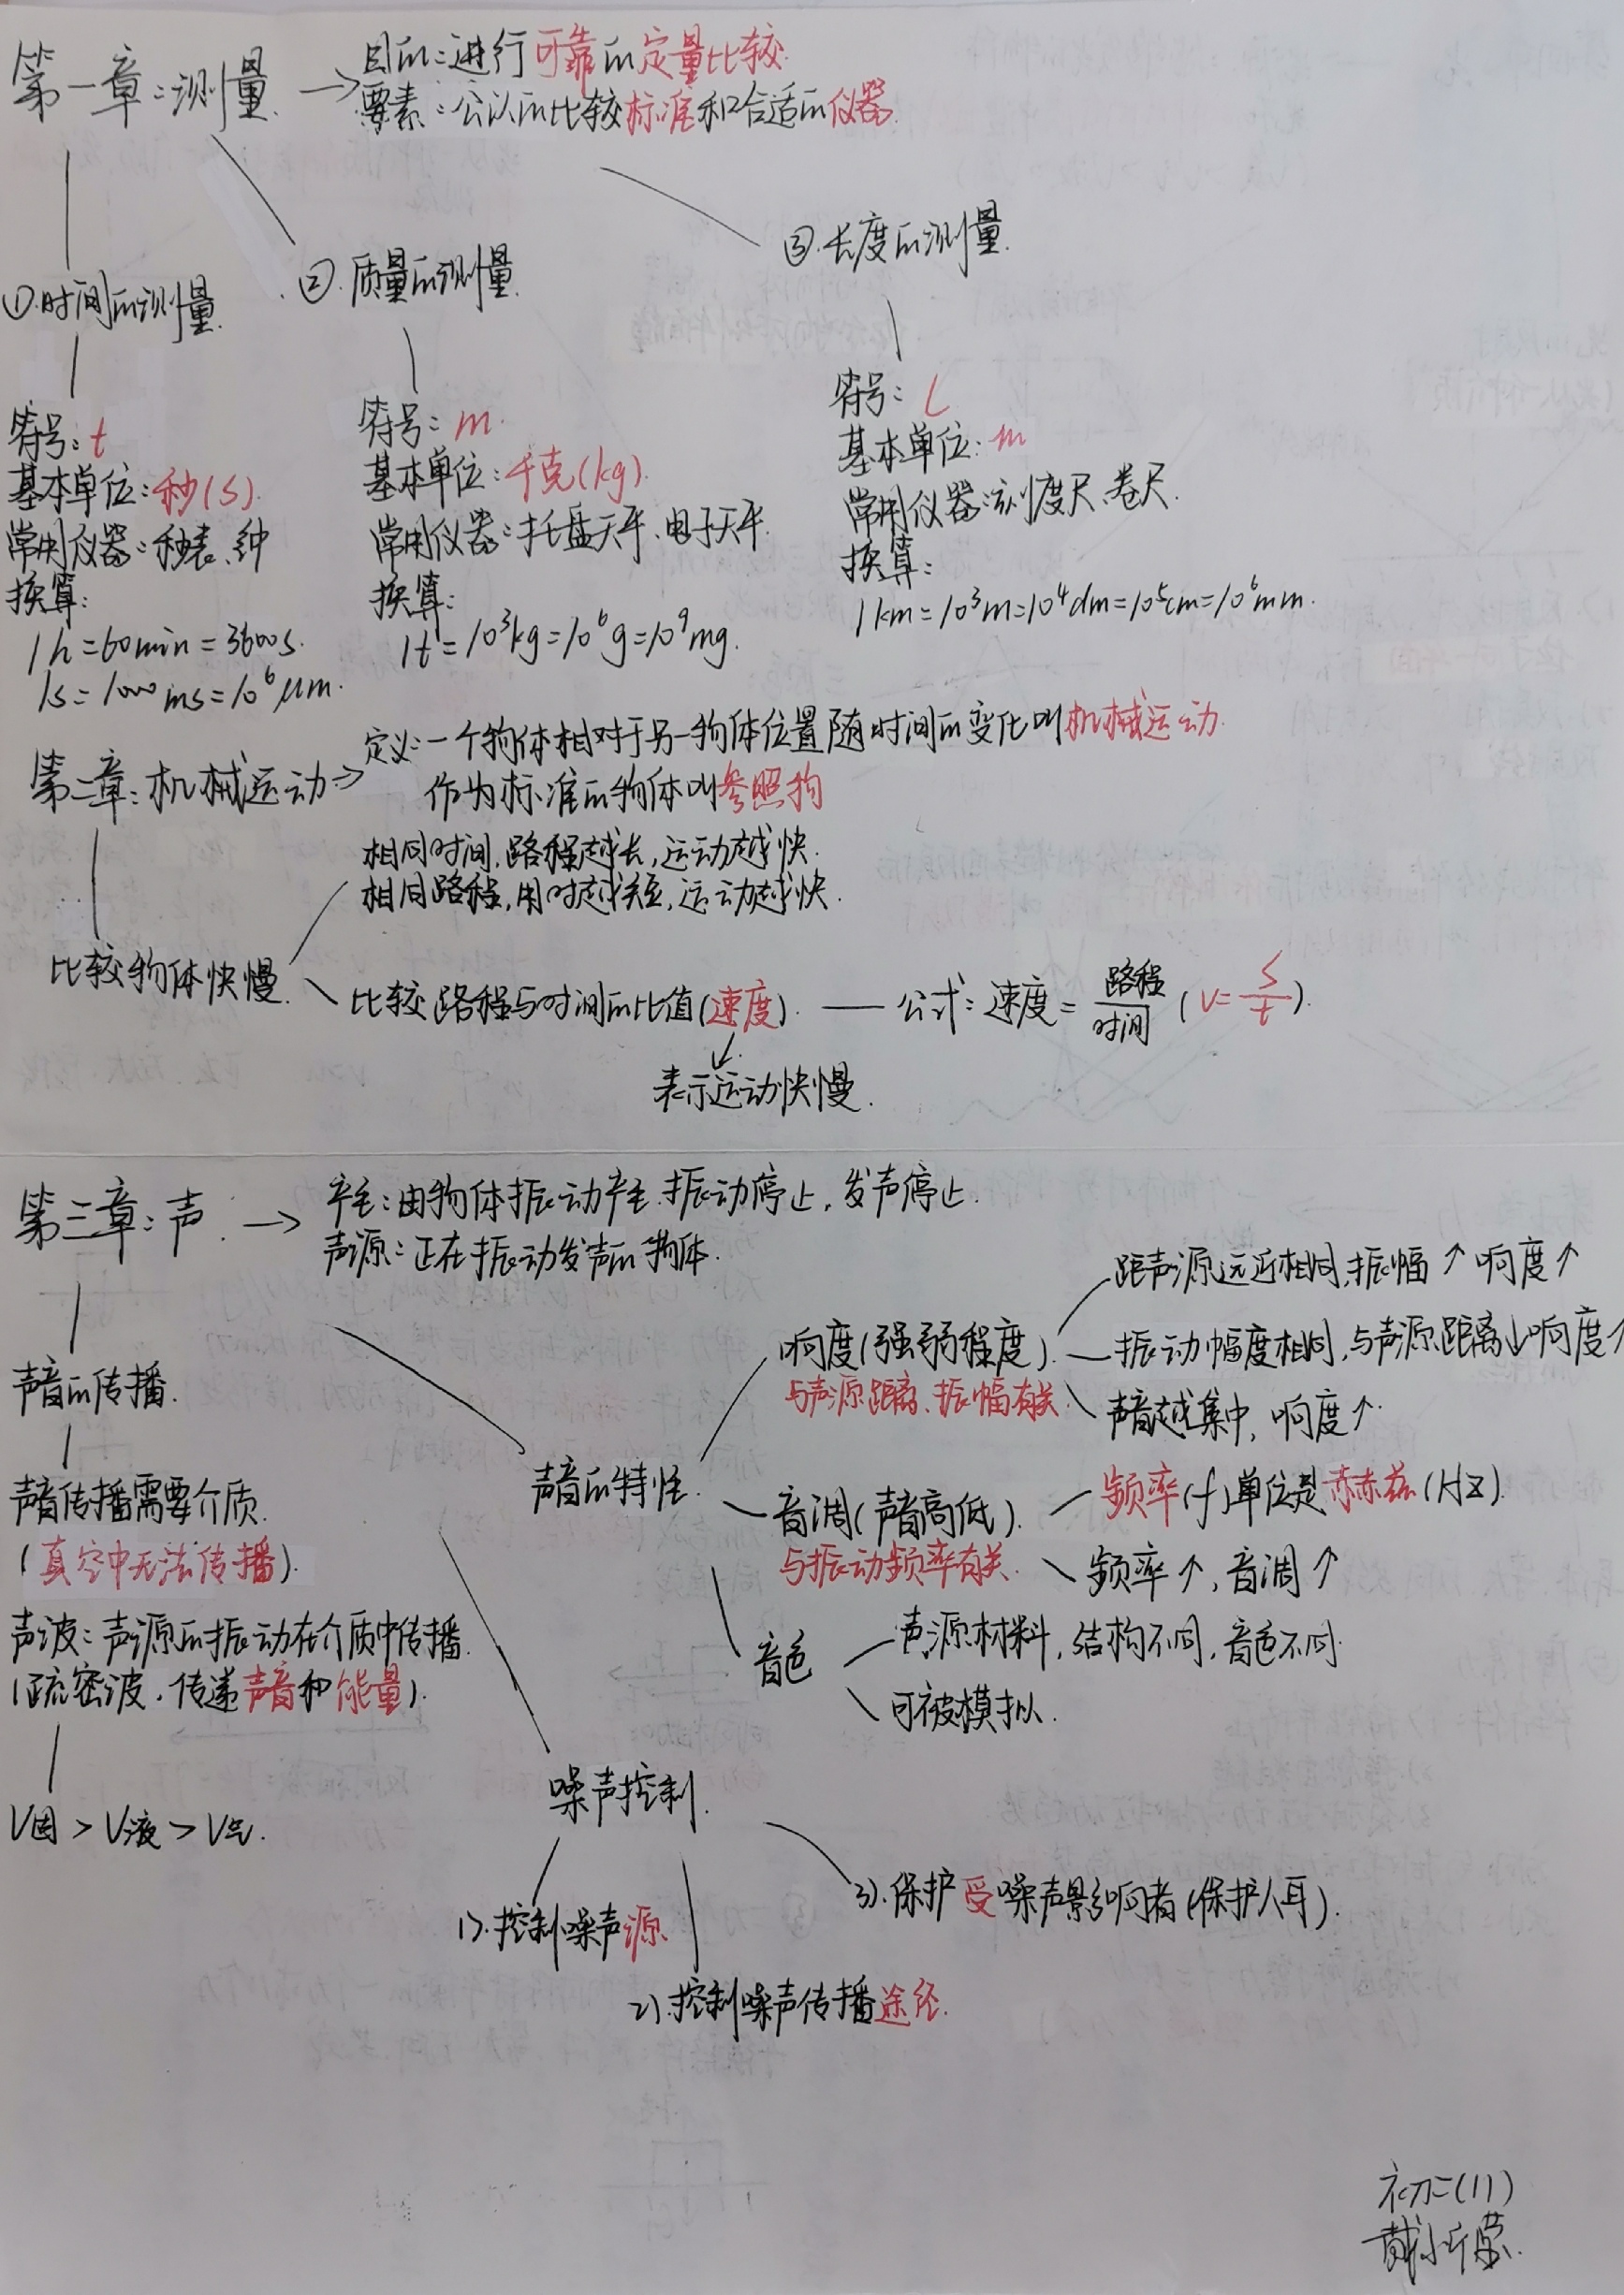 第一章：测量
目的：进行可靠的定量比较.
要素：公认的比较标准和合适的仪器.
①.时间的测量.
②.质量的测量.
③.长度的测量.
符号：t
基本单位：秒(s).
常用仪器：秒表、钟
换算：
1h=60min=3600s.
1s=1000ms=10⁶μm.
符号：m.
基本单位：千克(kg).
常用仪器：托盘天平、电子天平.
换算：
1t=10³kg=10⁶g=10⁹mg.
符号：l
基本单位：m
常用仪器：刻度尺、卷尺.
换算：
1km=10³m=10⁴dm=10⁵cm=10⁶mm.
第二章：机械运动⇒
定义：一个物体相对于另一物体位置随时间的变化叫机械运动.
作为标准的物体叫参照物
比较物体快慢.
相同时间,路程越长,运动越快.
相同路程,用时越短,运动越快.
比较路程与时间的比值(速度). — 公式：速度=路程/时间 (v=s/t).
表示运动快慢.
第三章：声. →
产生：由物体振动产生.振动停止,发声停止.
声源：正在振动发声的物体.
声音的传播.
声音传播需要介质.
(真空中无法传播).
声波：声源的振动在介质中传播.
(疏密波.传递声音和能量).
V固>V液>V气.
声音的特性.
响度(强弱程度).
与声源距离、振幅有关.
距声源远近相同,振幅↑响度↑
振动幅度相同,与声源距离↓响度↑
声音越集中,响度↑.
音调(声音高低).
与振动频率有关.
频率(f)单位是赫赫兹(Hz).
频率↑,音调↑
音色
声源材料,结构不同,音色不同.
可被模拟.
噪声控制.
1).控制噪声源.
2).控制噪声传播途径.
3).保护受噪声影响者(保护人耳).
初二(11)